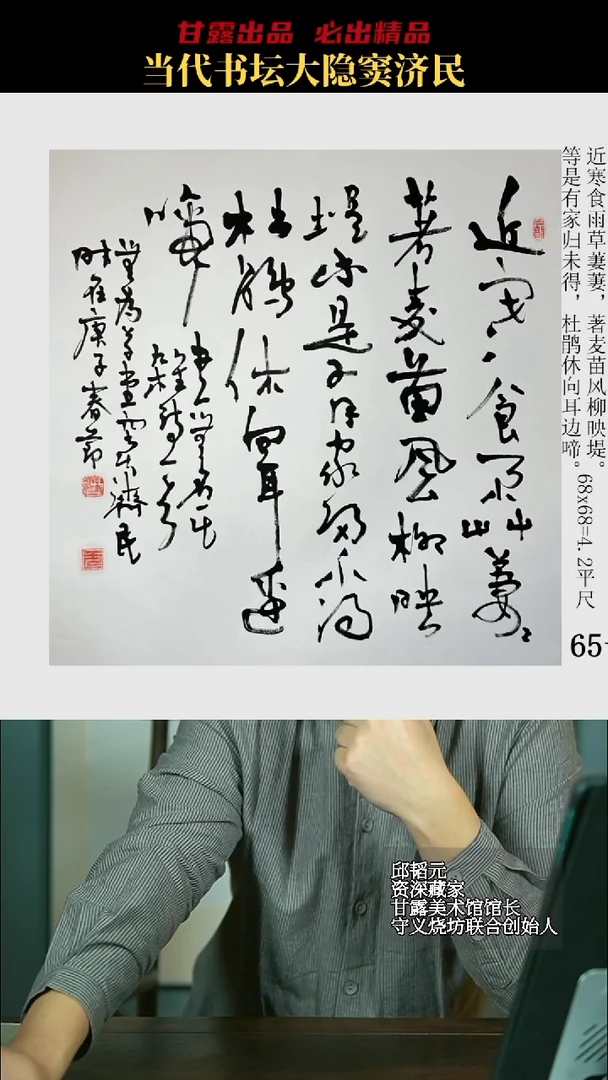 甘露出品 必出精品
当代书坛大隐窦济民
近寒食雨草萋萋，著麦苗风柳映堤。
等是有家归未得，杜鹃休问耳边啼。68x68=4.2平尺
65
近寒食雨草萋萋
著麦苗风柳映
堤等是有家归未得
杜鹃休向耳边
啼
时在庚子春节
邱韬元
资深藏家
甘露美术馆馆长
守义烧坊联合创始人